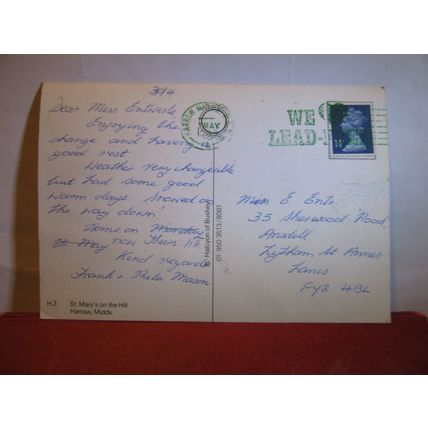 30/4
Dear Miss Entwisle
Enjoying the
change and having
good rest.
Weather very changeable
but had some good
warm days. Snowed on
the way down!
Home on
8th May now
Kind regards
Frank & Rita Mason
H.3 St. Mary's on the Hill
Harrow, Middx.
© Halcyon of Bushey 01-950 3513/8081
HARROW
MAY
WE
LEAD
Miss E. Ent
35 Sherwood Road,
Ansdell
Lytham St Annes
Lancs
FY8 4BL